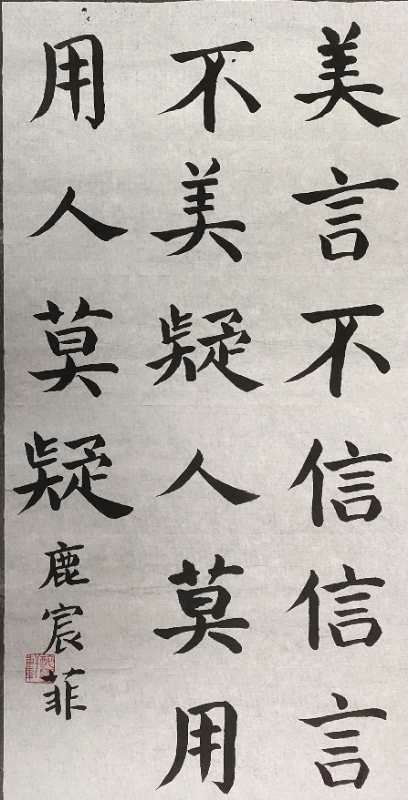 美言不信信言
不美疑人莫用
用人莫疑
鹿宸菲